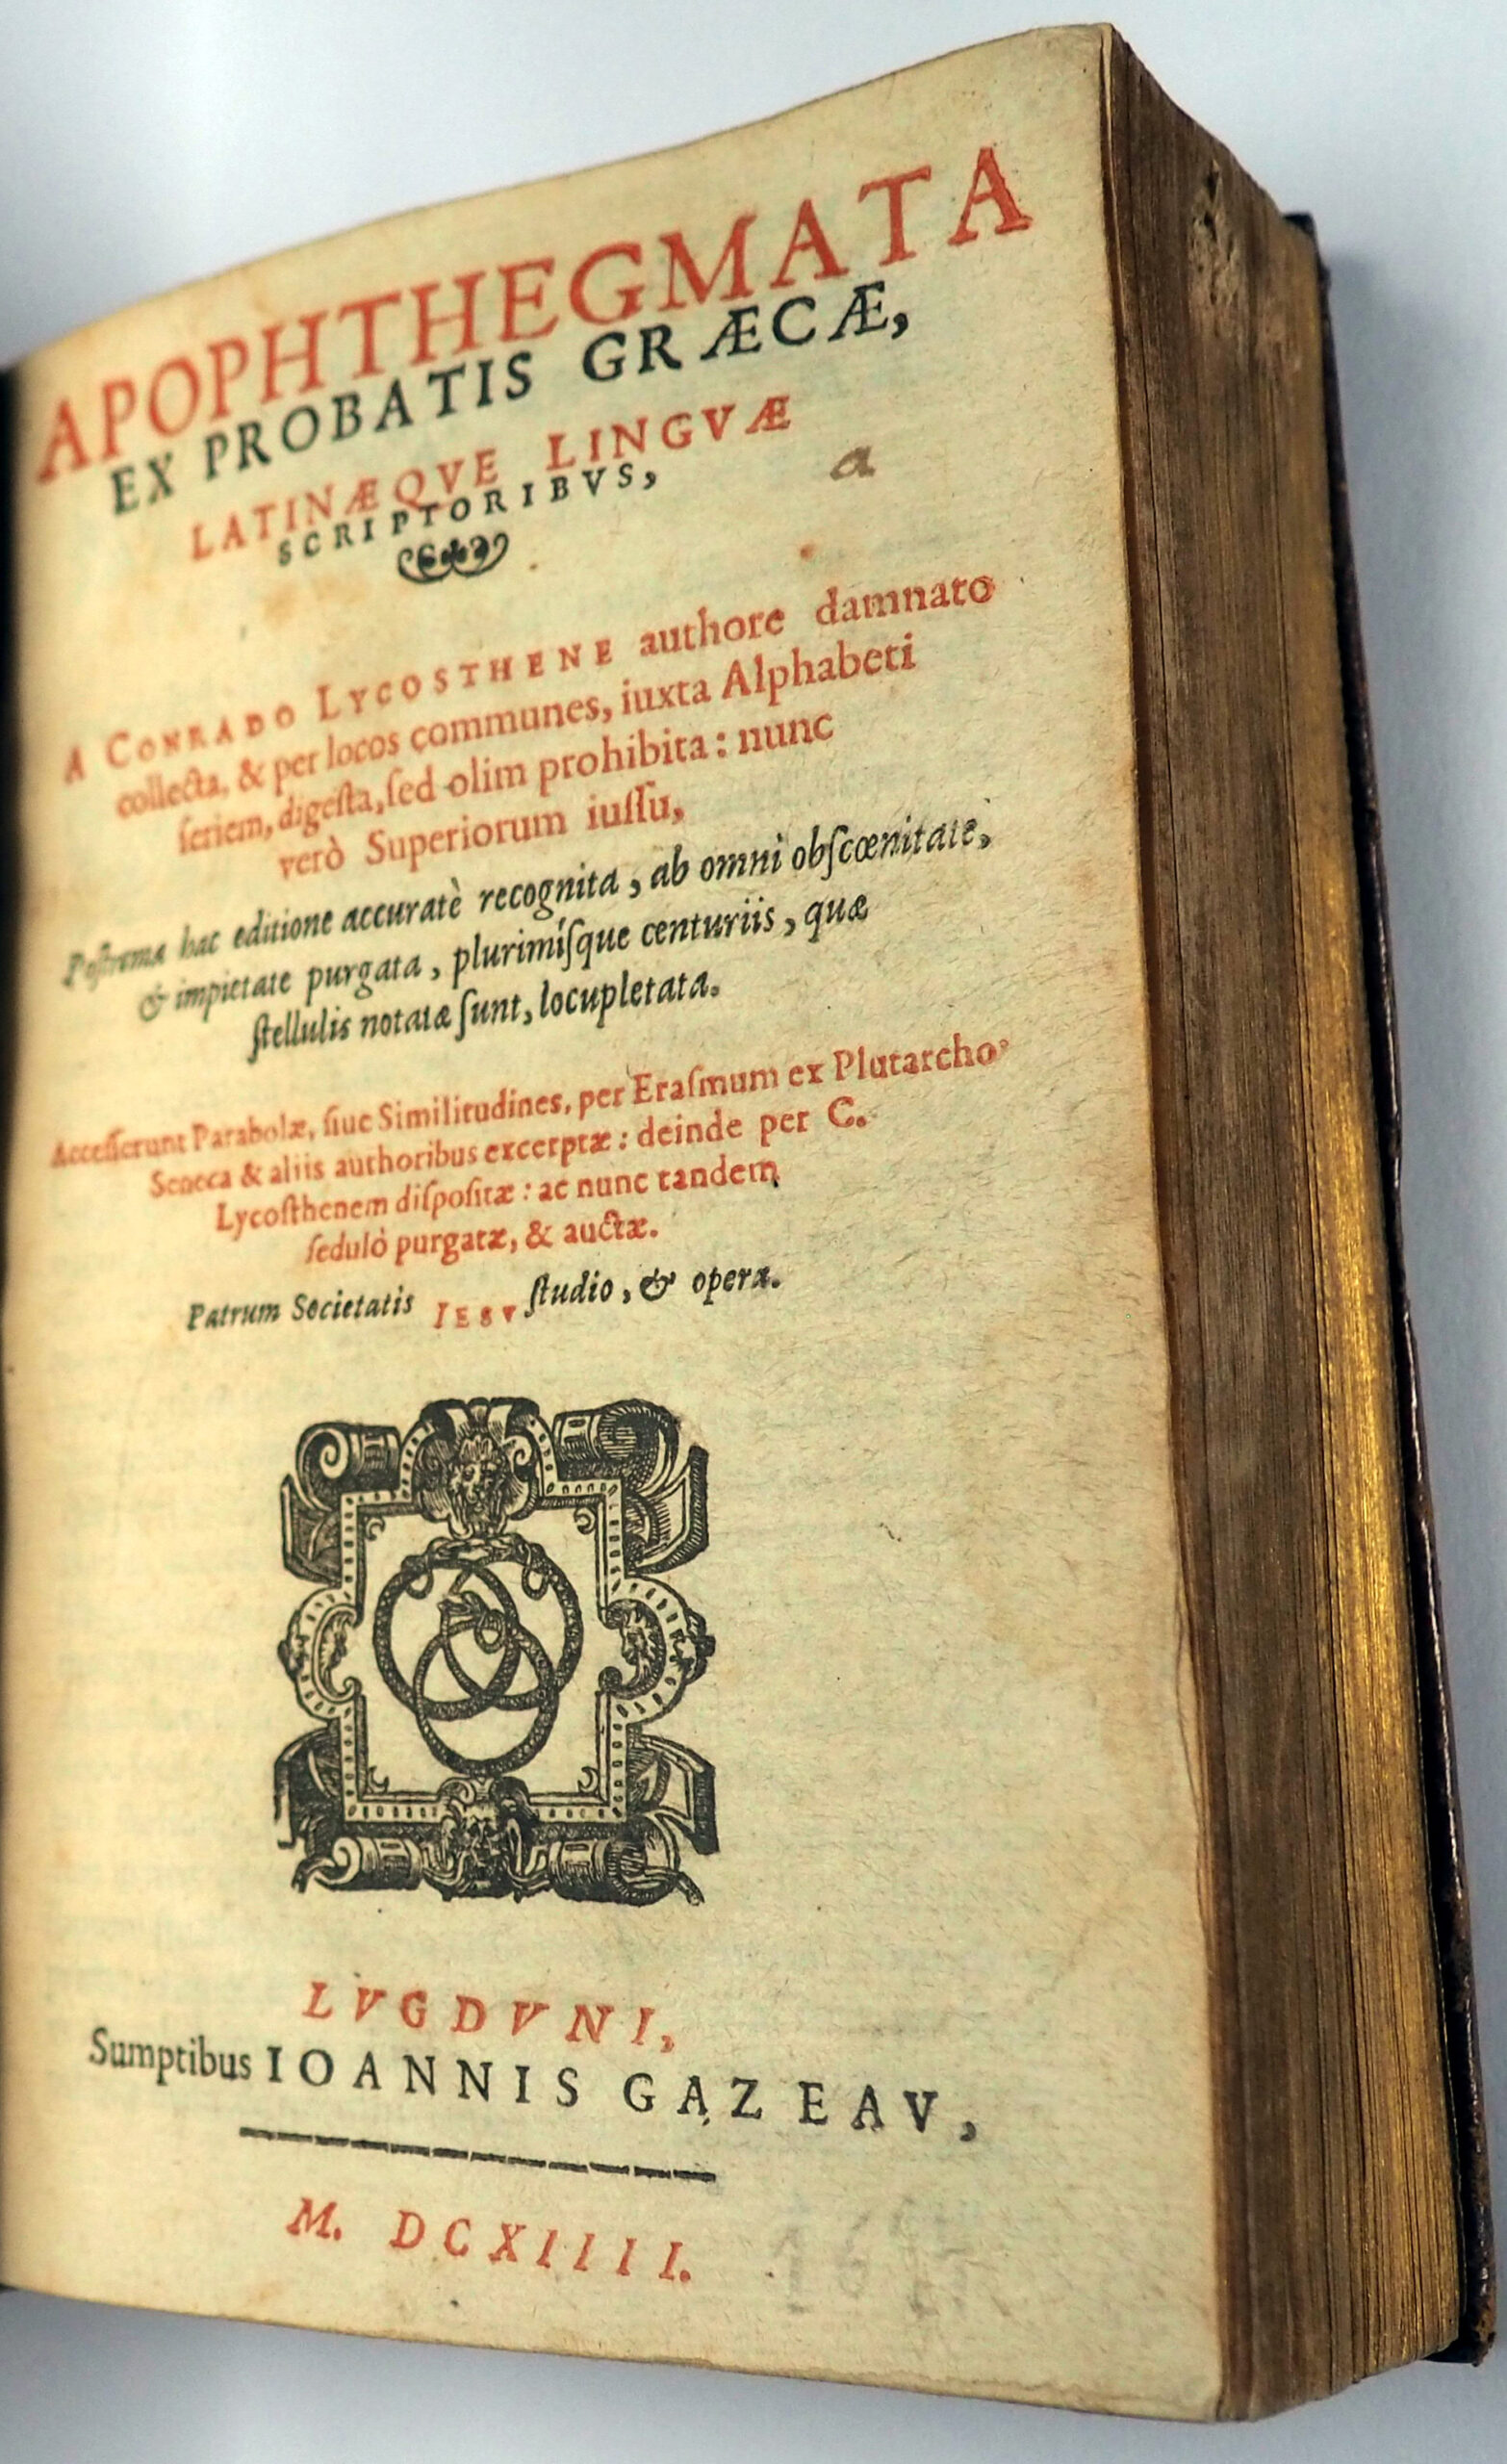 APOPHTHEGMATA
EX PROBATIS GRÆCÆ,
LATINÆQVE LINGVÆ
SCRIPTORIBVS,
a
A CONRADO LYCOSTHENE authore damnato
collecta, & per locos communes, iuxta Alphabeti
ſeriem, digeſta, ſed olim prohibita: nunc
verò Superiorum iuſſu,
Poſtrema hac editione accuratè recognita, ab omni obſcœnitate,
& impietate purgata, plurimíſque centuriis, quæ
ſtellulis notatæ ſunt, locupletata.
Acceſſerunt Parabolæ, ſiue Similitudines, per Eraſmum ex Plutarcho
Seneca & aliis authoribus excerptæ: deinde per C.
Lycoſthenem diſpoſitæ: ac nunc tandem
ſedulò purgatæ, & auctæ.
Patrum Societatis IESV ſtudio, & opera.
LVGDVNI,
Sumptibus IOANNIS GAZEAV,
M. DCXIIII.